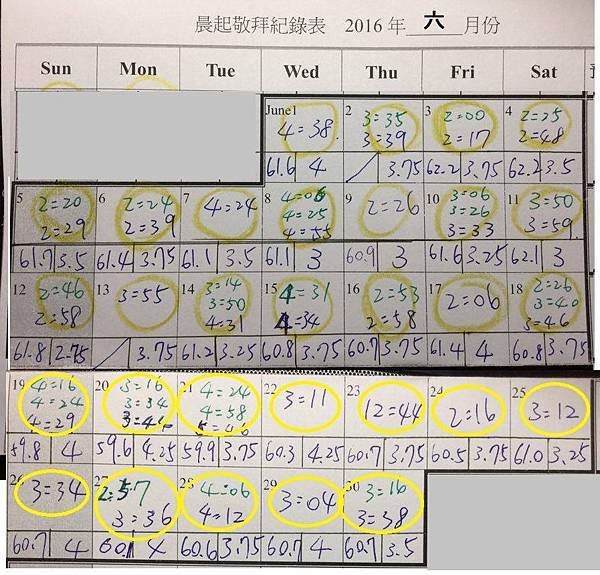 晨起敬拜紀錄表 2016年六月份
Sun Mon Tue Wed Thu Fri Sat
June1 2 3 4
4=38 3=35 2=00 2=25
3=39 2=17 2=48
61.6 4 3.75 62.2 3.75 62.2 3.5
5 6 7 8 9 10 11
2=20 2=24 4=24 4=06 2=26 3=06 3=50
2=29 2=39 4=25 3=26 3=59
4=55 3=33
61.7 3.5 61.4 3.75 61.1 3.5 61.1 3 60.9 3 61.6 3.25 62.1 3
12 13 14 15 16 17 18
2=46 3=55 3=14 4=31 2=53 2=06 2=26
2=58 3=50 4=34 2=58 3=40
4=31 3=46
61.8 2.75 3.75 61.2 3.25 60.8 3.75 60.7 3.75 61.4 4 60.8 3.75
19 20 21 22 23 24 25
4=16 3=16 4=24 3=11 12=44 2=16 3=12
4=24 3=34 4=58
4=29 3=44
59.8 4 59.6 4.25 59.9 3.75 60.3 4.25 60.7 3.75 60.5 3.75 61.0 3.25
26 27 28 29 30
3=34 2=57 4=06 3=04 3=16
3=36 4=12 3=38
60.7 4 4 60.6 3.75 60.7 4 60.7 3.5